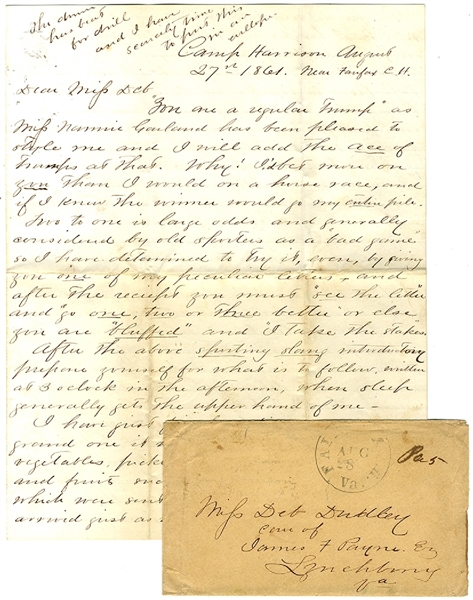 The drum
has beat
for drill
and I have
scarcely time
to put this
in an
envelope
Camp Harrison August
27th 1861. Near Fairfax C. H.
Dear Miss Deb
"You are a regular Trump" as
Miss Nannie Garland has been pleased to
style me and I will add the ace of
Trumps at that. Why! I'd bet more on
you than I would on a horse race, and
if I knew the winner would go my entire pile.
Two to one is large odds and generally
considered by old sporters as a "bad game"
so I have determined to try it, even, by giving
you one of my peculiar letters, and
after the receipt you must "see the letter"
and "go one, two or three better" or else
you are "bluffed" and "I take the stakes.
After the above sporting slang introductory
prepare yourself for what is to follow, written
at 3 oclock in the afternoon, when sleep
generally gets the upper hand of me —
I have just
grand one it
vegetables,
and fruits
which were sent
arrived just as
AUG
28
Va.
Miss Deb Dudley
care of
James F Payne Esq
Lynchburg
Va